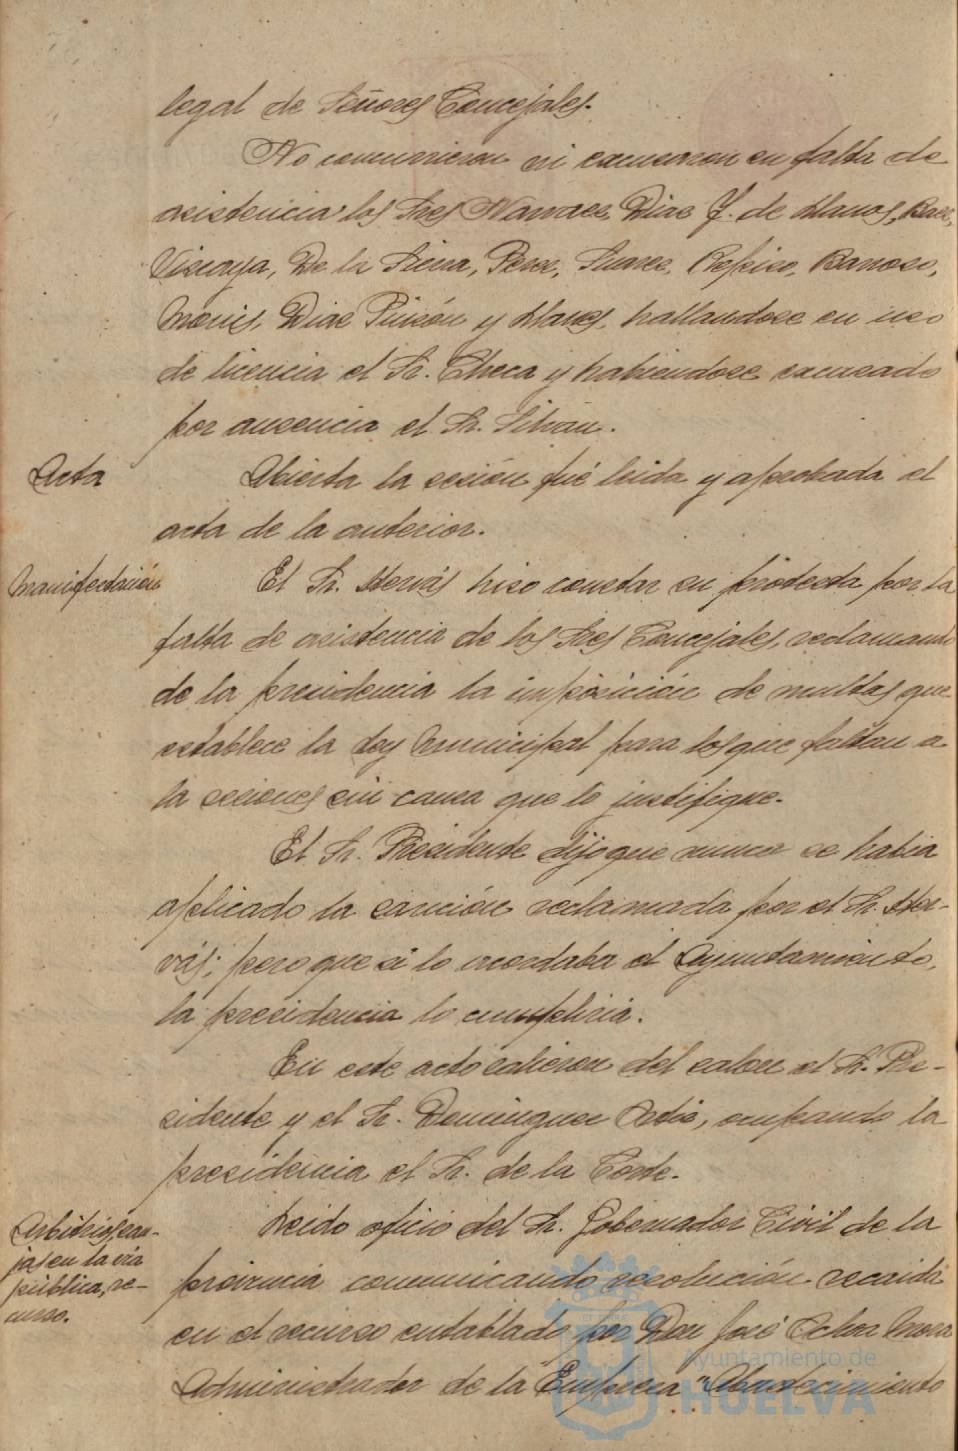 legal de Señores Concejales.
No concurrieron ni excusaron su falta de
asistencia los Sres Narvaez, Diaz J. de Llanos, Baez,
Vizcaya, De la Sierra, Perez, Suarez, Repiso, Barroso,
Monis, Diaz Pinzón y Llanes, hallandose en uso
de licencia el Sr. Checa y habiendose excusado
por ausencia el Sr. Silván.
Acta
Abierta la sesión fué leida y aprobada el
acta de la anterior.
Manifestación
El Sr. Hervás hizo constar su protesta por la
falta de asistencia de los Sres Concejales, reclamando
de la presidencia la imposición de multas que
establece la Ley Municipal para los que faltan a
la sesiones sin causa que lo justifique.
El Sr. Presidente dijo que nunca se habia
aplicado la sanción reclamada por el Sr. Her-
vás; pero que si lo acordaba el Ayuntamiento,
la presidencia lo cumpliria.
En este acto salieron del salon el Sr. Pre-
sidente y el Sr. Dominguez, ocupando la
presidencia el Sr. de la Corte.
Arbitrios, zan-
jas en la via
pública, re-
curso.
Leido oficio del Sr. Gobernador Civil de la
provincia comunicando resolución recaida
en el recurso entablado por Don José Mora
Administrador de la Empresa "Abastecimiento
Ayuntamiento de
HUELVA